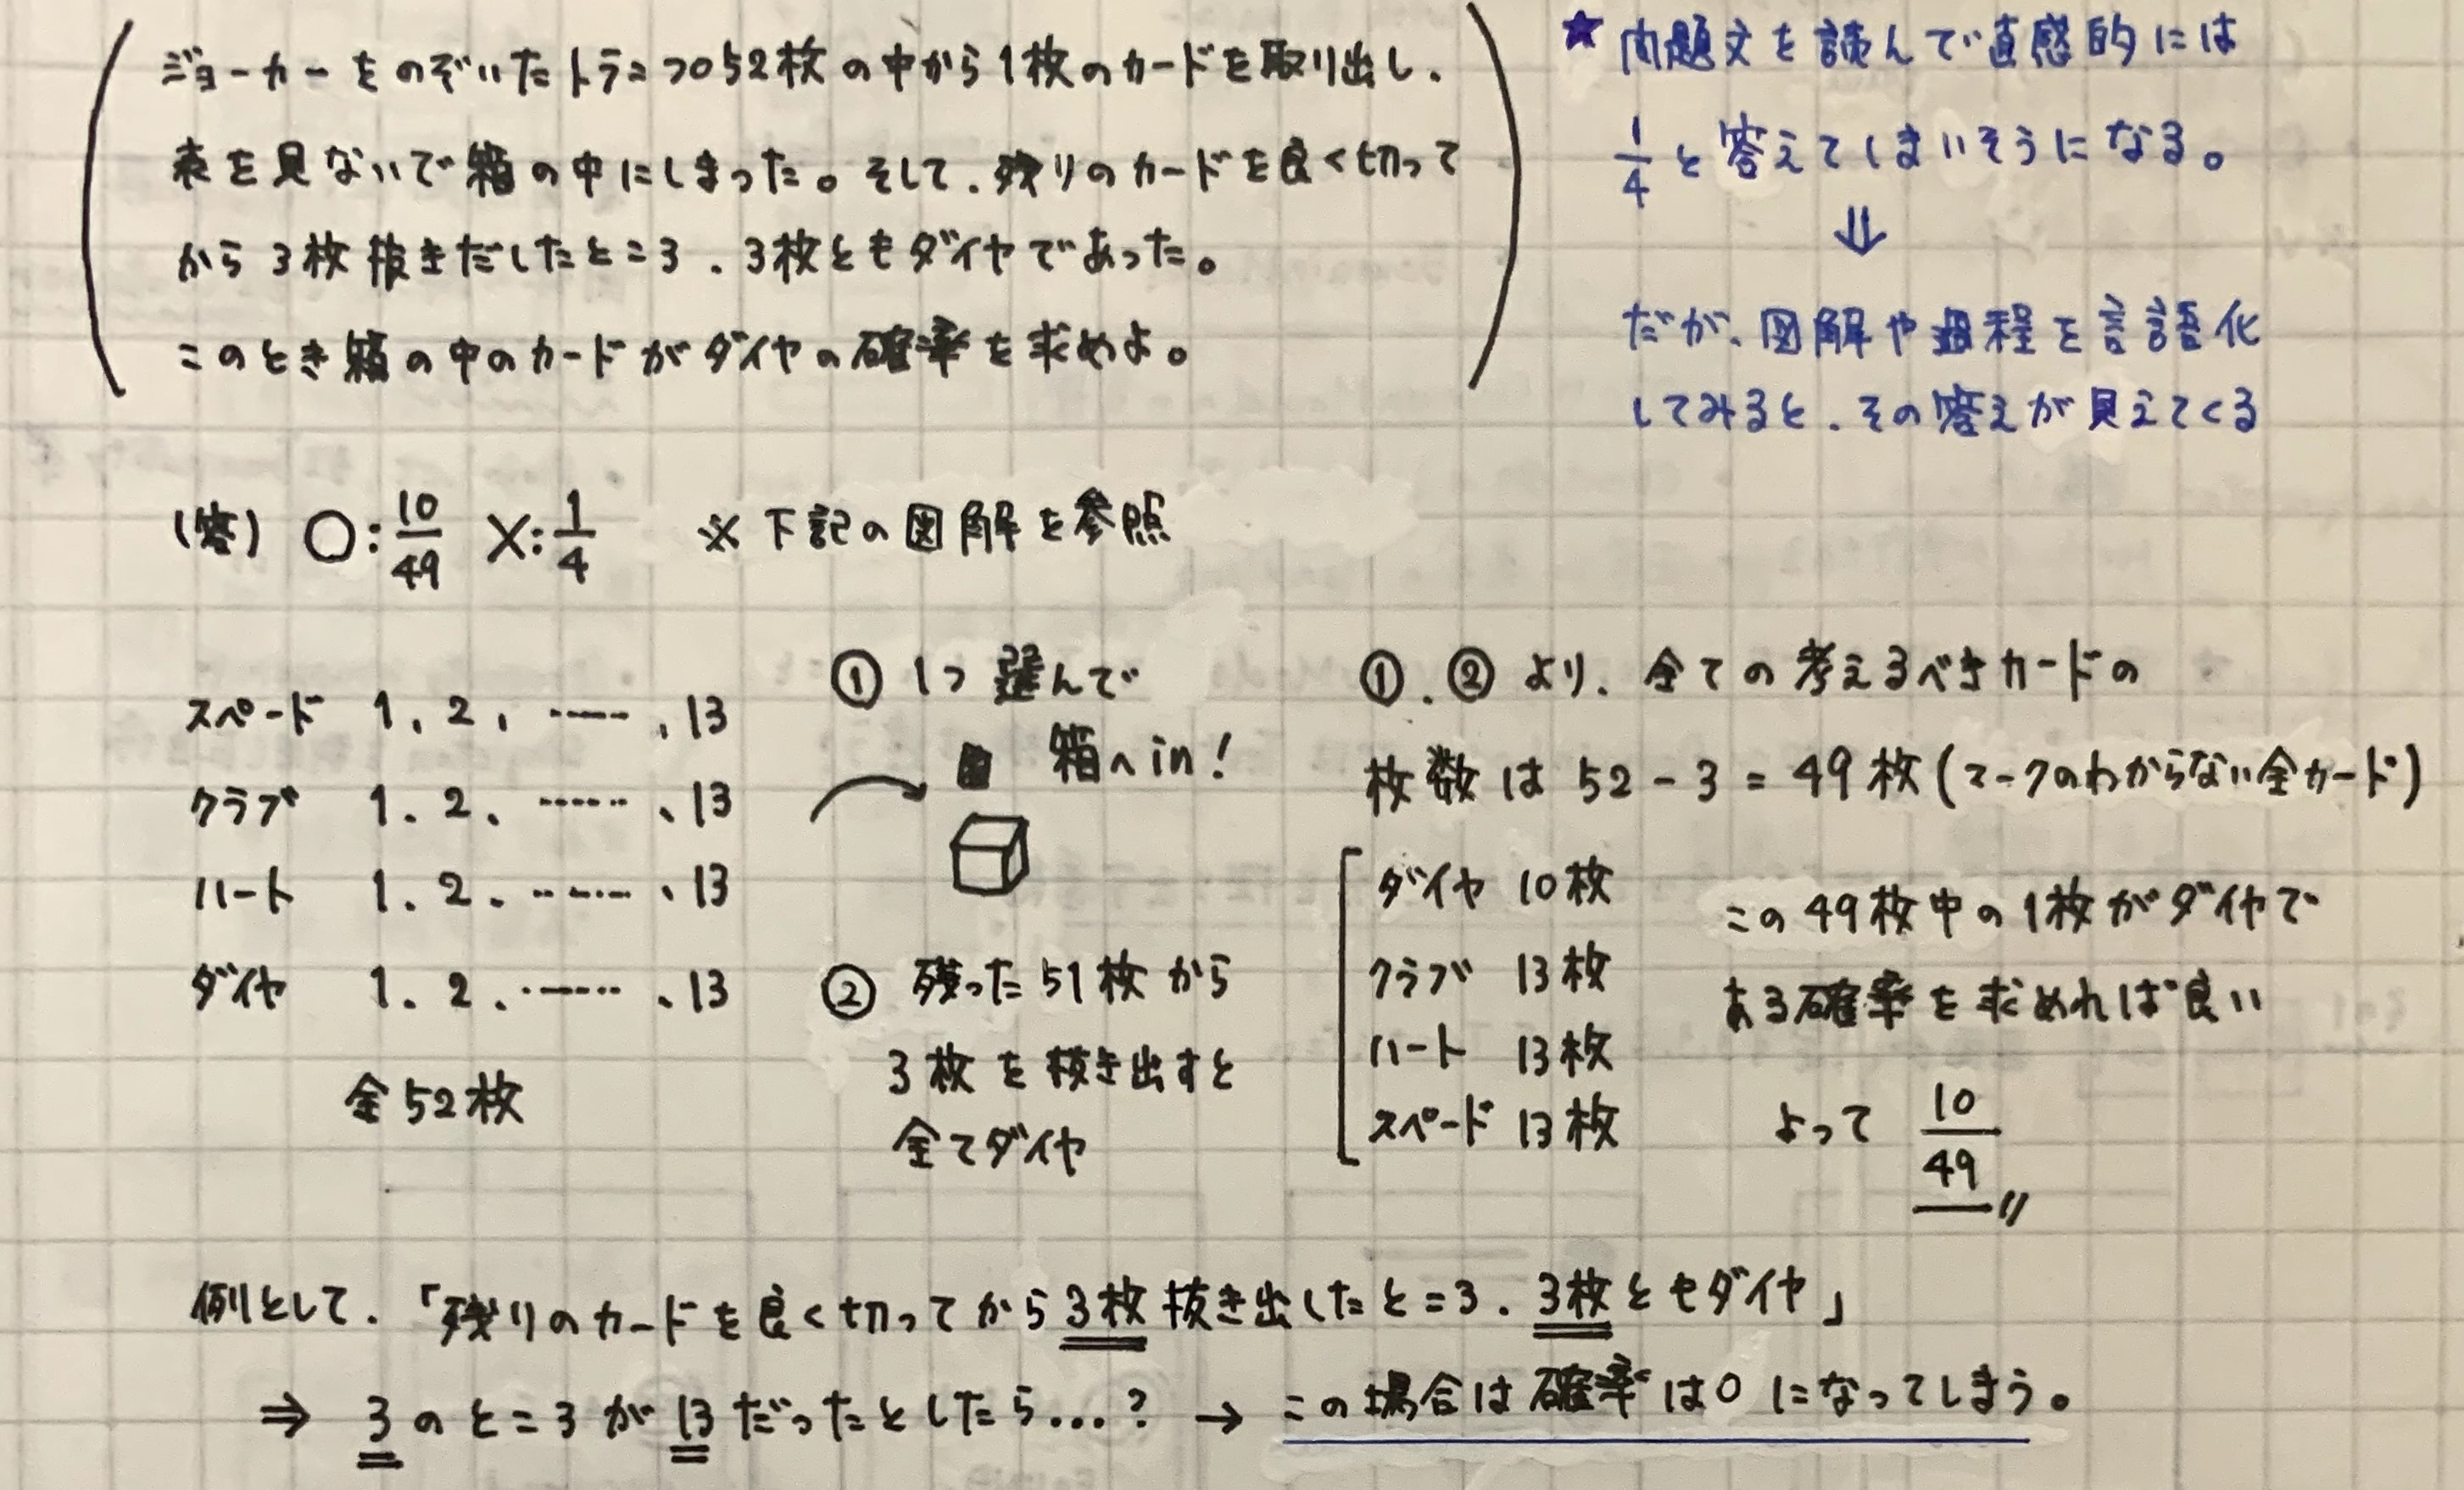 ジョーカーをのぞいたトランプ52枚の中から1枚のカードを取り出し、
表を見ないで箱の中にしまった。そして、残りのカードを良く切って
から3枚抜きだしたところ、3枚ともダイヤであった。
このとき箱の中のカードがダイヤの確率を求めよ。
★ 問題文を読んで直感的には
1/4 と答えてしまいそうになる。
⇓
だが、図解や過程を言語化
してみると、その答えが見えてくる
(答) ○:10/49 X:1/4 ※下記の図解を参照
スペード 1、2、……、13
クラブ 1、2、……、13
ハート 1、2、……、13
ダイヤ 1、2、……、13
全52枚
① 1つ選んで
箱へin!
② 残った51枚から
3枚を抜き出すと
全てダイヤ
①、②より、全ての考えるべきカードの
枚数は 52-3=49枚(マークのわからない全カード)
ダイヤ 10枚
クラブ 13枚
ハート 13枚
スペード 13枚
この49枚中の1枚がダイヤで
ある確率を求めれば良い
よって 10/49
例として、「残りのカードを良く切ってから3枚抜き出したところ、3枚ともダイヤ」
⇒ 3のところが13だったとしたら…? → この場合は確率は0になってしまう。